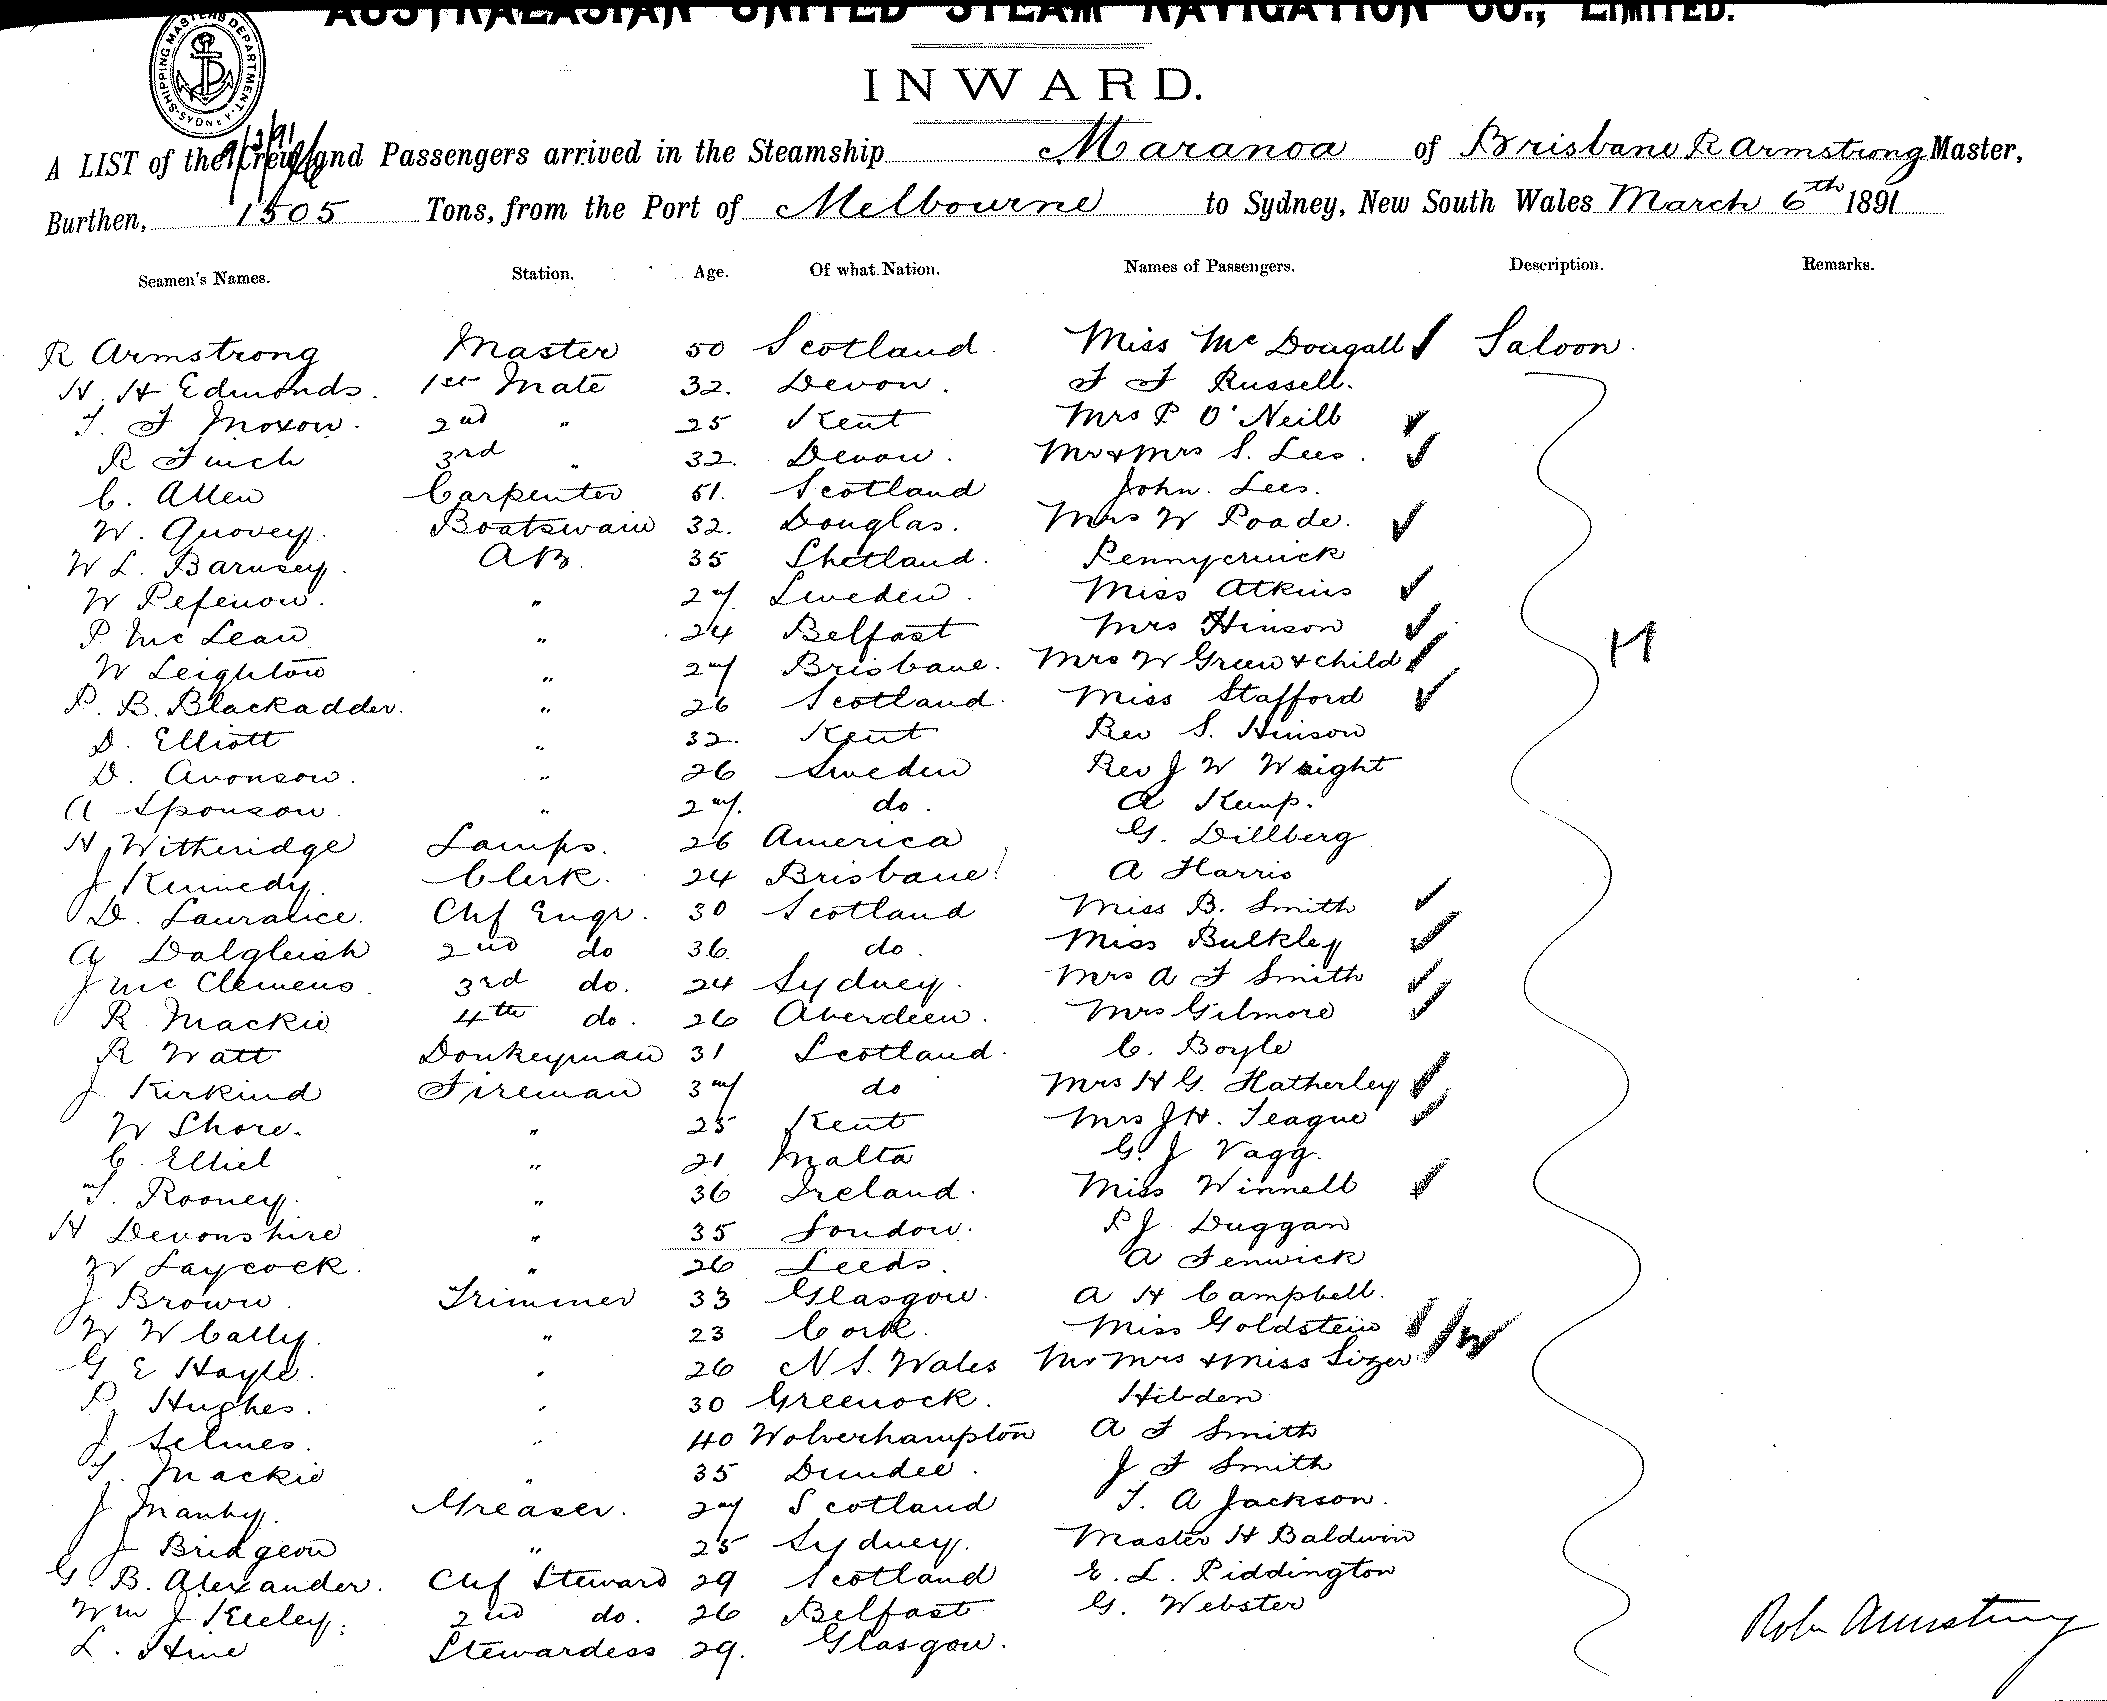 AUSTRALASIAN UNITED STEAM NAVIGATION CO., LIMITED.
SHIPPING MASTERS DEPARTMENT SYDNEY
INWARD.
A LIST of the Crew and Passengers arrived in the Steamship Maranoa of Brisbane R Armstrong Master,
Burthen, 1505 Tons, from the Port of Melbourne to Sydney, New South Wales March 6th 1891
Seamen's Names. Station. Age. Of what Nation. Names of Passengers. Description. Remarks.
R Armstrong Master 50 Scotland Miss McDougall Saloon.
H. H Edmonds. 1st Mate 32. Devon. F F Russell.
T. F Moxon. 2nd " 25 Kent Mrs P O'Neill
R Finch 3rd " 32. Devon. Mr & Mrs S. Lees.
C. Allen Carpenter 51. Scotland John. Lees.
W. Quovey. Boatswain 32. Douglas. Mrs W Poade.
W L. Barnsey. AB. 35 Shetland. Pennycruick
W Pefenow. " 27 Sweden. Miss Atkins
P McLean " 24 Belfast Mrs Hinson
W Leighton " 27 Brisbane. Mrs W Green & child
P. B. Blackadder. " 26 Scotland. Miss Stafford
D. Elliott " 32. Kent Rev S. Hinson
D. Avonson. " 26 Sweden Rev J W Wright
A Sponson. " 27. do. A Kemp.
H Witheridge Lamps. 26 America G. Dillberg
J Kennedy. Clerk. 24 Brisbane A Harris
D. Lauralice. Chf Engr. 30 Scotland Miss B. Smith
A Dalgleish 2nd do 36. do. Miss Bulkley
J McClemens 3rd do. 24 Sydney. Mrs A F Smith
R Mackie 4th do. 26 Aberdeen. Mrs Gilmore
R Watt Donkeyman 31 Scotland. C. Boyle
J Kirkind Fireman 37 do Mrs H G. Hatherley
W Shore. " 25 Kent Mrs J H. Teague
C. Elliel " 21 Malta G. J Vagg.
T. Rooney. " 36 Ireland. Miss Winnell
H Devonshire " 35 London. P J Duggan
W Laycock. " 26 Leeds. A Fenwick
J Brown. Trimmer 33 Glasgow. A H Campbell.
W W Cally. " 23 Cork. Miss Goldstein
G E Hayle. " 26 N S. Wales Mr Mrs & Miss Sizer
P Hughes. " 30 Greenock. Hibden
J Selmes. " 40 Wolverhampton A F Smith
T. Mackie " 35 Dundee. J F Smith
J Manby. Greaser. 27 Scotland T. A Jackson.
J Bridgeon " 25 Sydney. Master H Baldwin
G. B. Alexander. Chf Steward 29 Scotland E. L. Piddington
Wm J Keeley. 2nd do. 26 Belfast G. Webster
L. Hine Stewardess 29. Glasgow.
Robt Armstrong